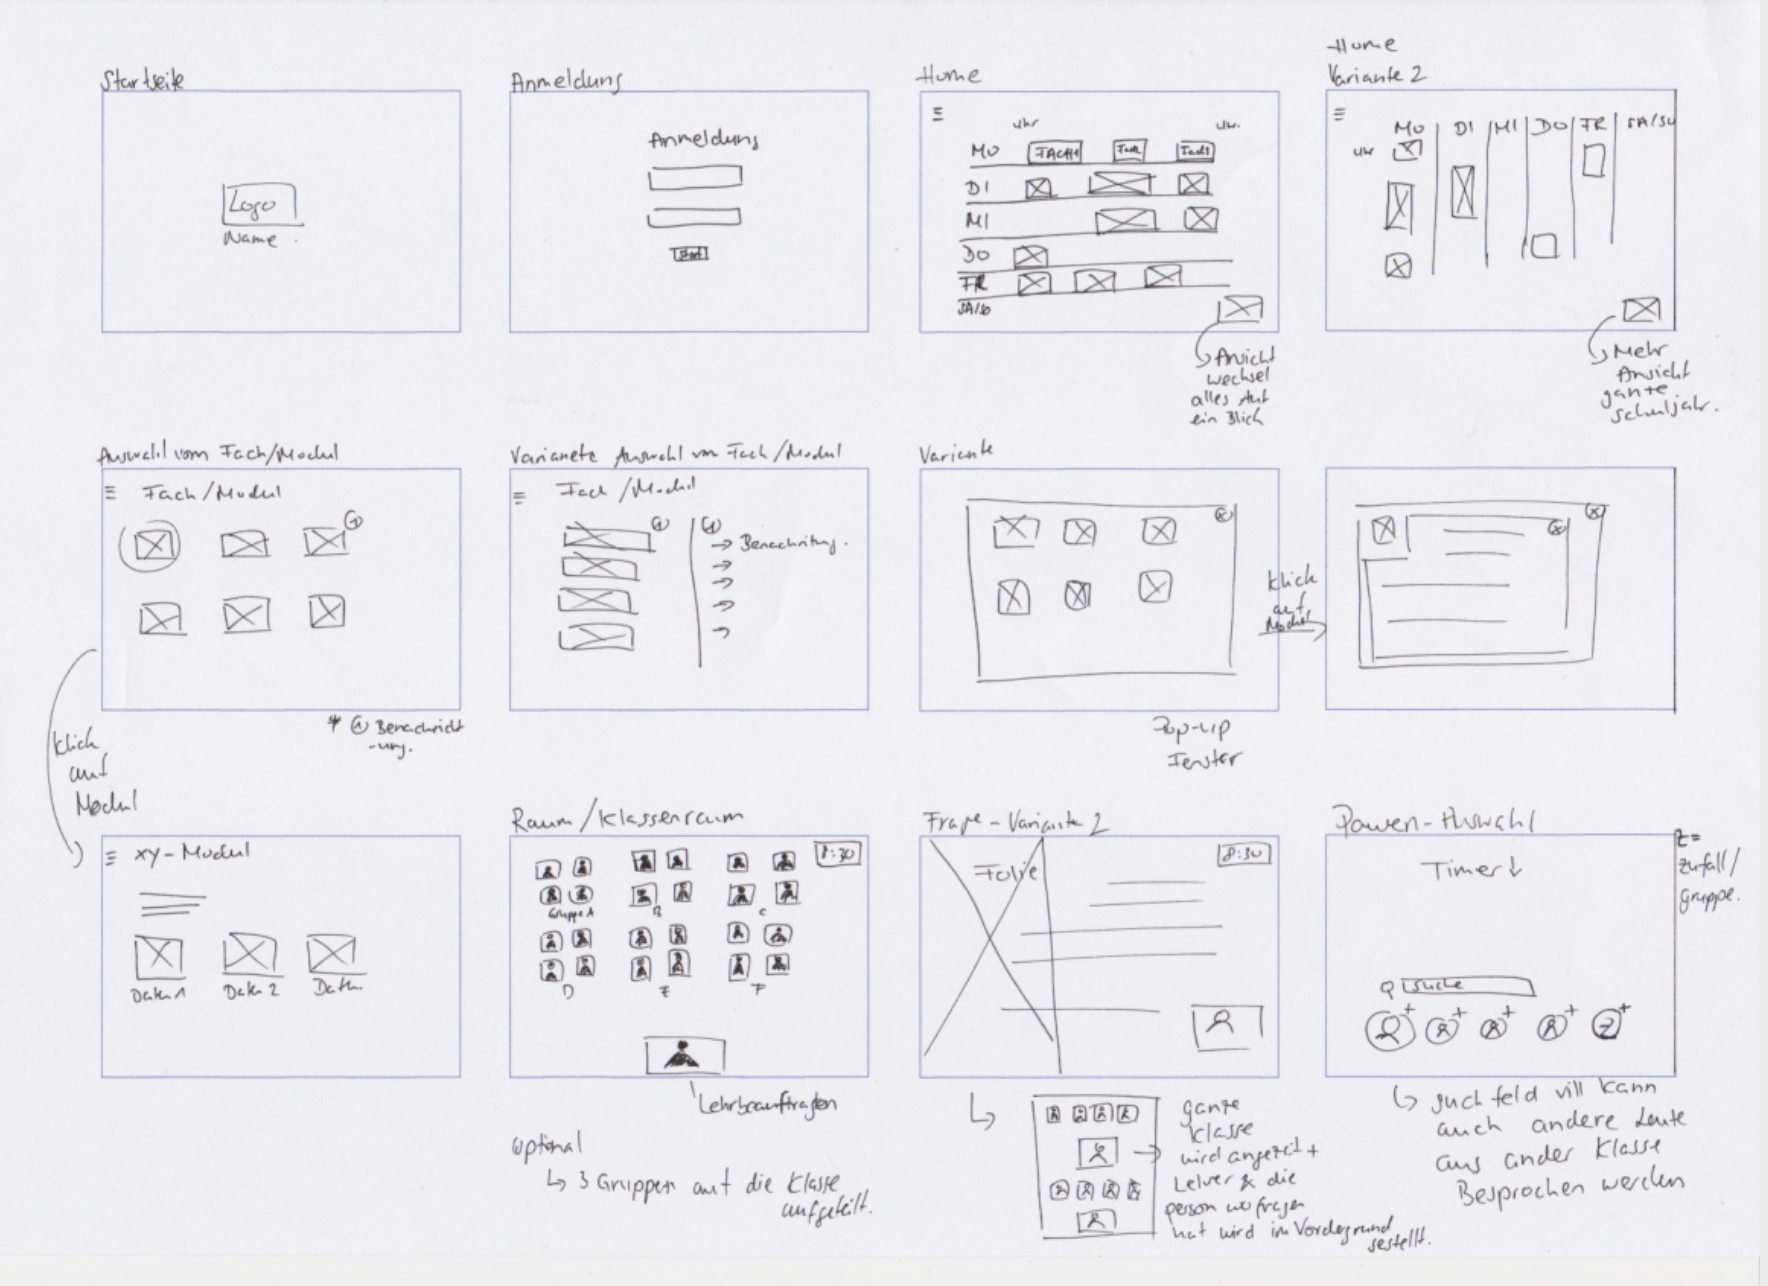 Startseite
Logo
Name
Anmeldung
Anmeldung
Start
Home
uhr
uhr.
MO FACH1 Fach Fach
DI
MI
DO
FR
SA/SO
Ansicht
wechsel
alles Auf
ein Blick
Home
Variante 2
MO DI MI DO FR SA/SU
uhr
Mehr
Ansicht
gante
Schuljahr.
Auswahl vom Fach/Modul
Fach/Modul
1
* 1 Benachricht
-ung.
Klick
auf
Modul
Varianete Auswahl von Fach/Modul
Fach/Modul
1 1
→ Benachritung.
→
→
→
→
Variante
x
Pop-up
Fenster
Klick
auf
Modul
x x
xy-Modul
Datei 1 Datei 2 Datei
Raum/Klassenraum
8:30
Gruppe A B C
D E F
Lehrbeauftragten
Optional
↳ 3 Gruppen auf die Klasse
aufgeteilt.
Frage-Variante 2
Folie
8:30
↳ ganze
Klasse
wird angezeit +
Lehrer & die
person wo fragen
hat wird im Vordergrund
gestellt.
Pausen-Auswahl
Timer ↓
Z=
Zufall/
gruppe.
Suche
+ + + + Z+
↳ Suchfeld vill kann
auch andere Leute
aus ander Klasse
Besprochen werden